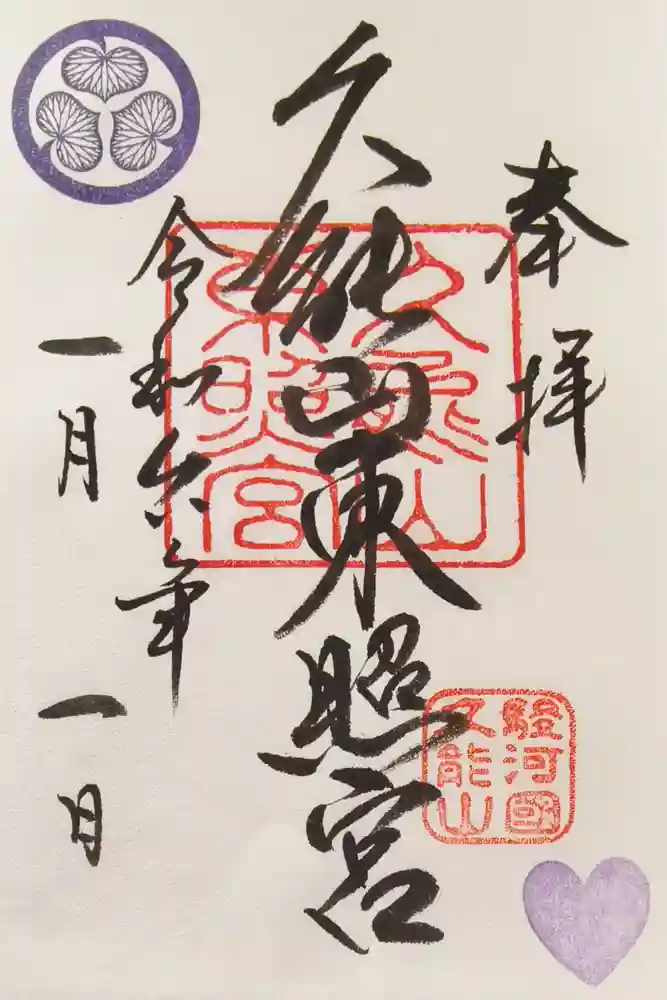 奉拝
久能山東照宮
令和六年
一月一日
久能山
東照宮
駿河國
久能山